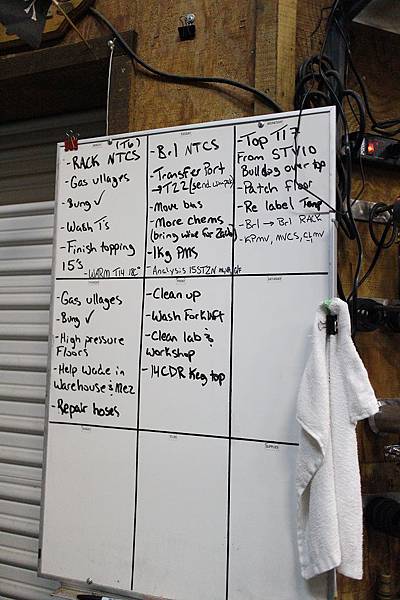 MONDAY
(T6)
- RACK NTCS
- Gas ullages
- Bung ✓
- Wash T's
- Finish topping
15's
- WARM T14 18°C
TUESDAY
- Brl NTCS
- Transfer Port
→ T22 (send samples)
- Move bins
- More chems
(bring wine for
- 1kg PMS
- Analysis 15STZN
WEDNESDAY
- Top T17
From STV10
Bulldog over top
- Patch floor
- Re label Temp
- Brl → Brl RACK
- KPMV, MVCS,
THURSDAY
- Gas ullages
- Bung ✓
- High pressure
Floors
- Help Wade in
Warehouse & Mez
- Repair hoses
FRIDAY
- Clean up
- Wash Forklift
- Clean lab &
workshop
- 14CDR Keg top
SATURDAY
SUNDAY